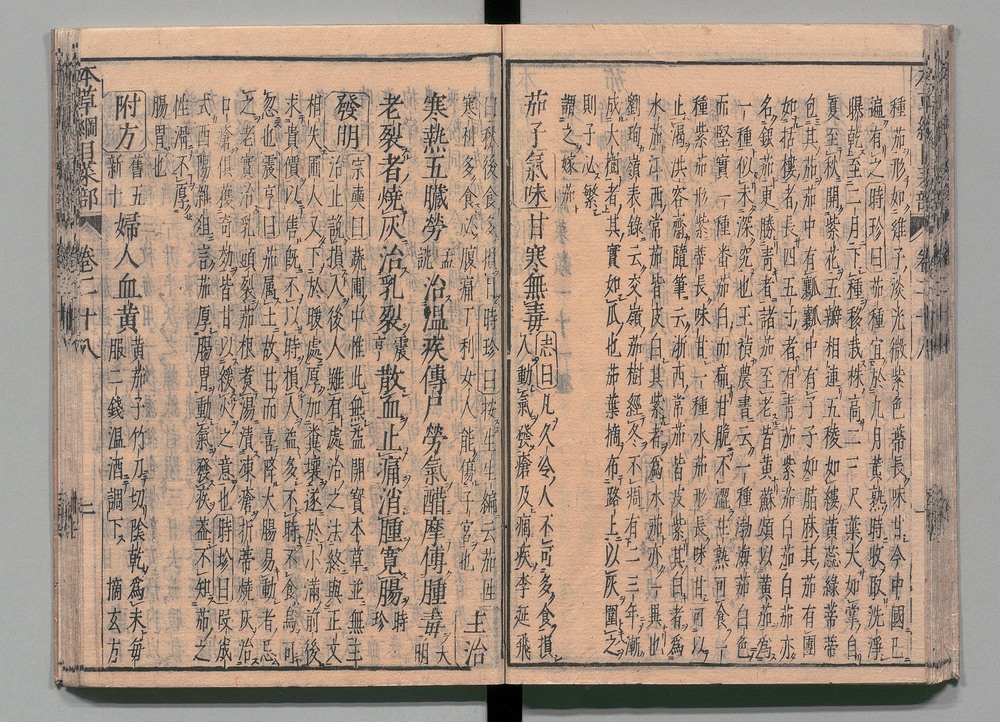 種茄形如雞子淡光微紫色蒂長味甘今中國已
遍有之時珍曰茄種宜於九月黃熟時收取洗淨
曝乾至二月下種移栽株高二三尺葉大如掌自
夏至秋開紫花五瓣相連五稜如縷黃蕊綠蒂蒂
包其茄茄中有瓤瓤中有子子如脂麻其茄有團
如栝樓者長四五寸者有青茄紫茄白茄白茄亦
名銀茄更勝青者諸茄至老皆黃蘇頌以黃茄爲
一種似未深究也王禎農書云一種渤海茄白色
而堅實一種番茄白而扁甘脆不澀生熟可食一
種紫茄形紫蒂長味甘一種水茄形長味甘可以
止渴洪容齋隨筆云浙西常茄皆皮紫其白者爲
水茄江西常茄皆皮白其紫者爲水茄亦一異也
劉恂嶺表錄云交嶺茄樹經冬不凋有二三年漸
成大樹者其實如瓜也茄葉摘布路上以灰圍之
則子必繁
謂之嫁茄
茄子氣味甘寒無毒志曰凡久冷人不可多食損
人動氣發瘡及痼疾李延飛
曰秋後食多損目時珍曰按生生編云茄性
寒利多食必腹痛下利女人能傷子宮也
主治
寒熱五臟勞孟詵治溫疾傳尸勞氣醋摩傅腫毒大明
老裂者燒灰治乳裂震亨散血止痛消腫寬腸時珍
發明宗奭曰蔬圃中惟此無益開寶本草並無主
治止說損人後人雖有處治之法終與正文
相失圃人又下於暖處厚加糞壤遂於小滿前後
求貴價以售旣不以時損人益多不時不食烏可
忽也震亨曰茄屬土故甘而喜降大腸易動者忌
之老實治乳頭裂茄根煮湯漬凍瘡折蒂燒灰治
口瘡俱獲奇効皆甘以緩火之意也時珍曰叚成
式酉陽雜俎言茄厚腸胃動氣發疾蓋不知茄之
性滑不厚
腸胃也
附方舊五新十婦人血黃黃茄子竹刀切陰乾爲末每
服二錢溫酒調下 摘玄方
本草綱目菜部 卷二十八 二